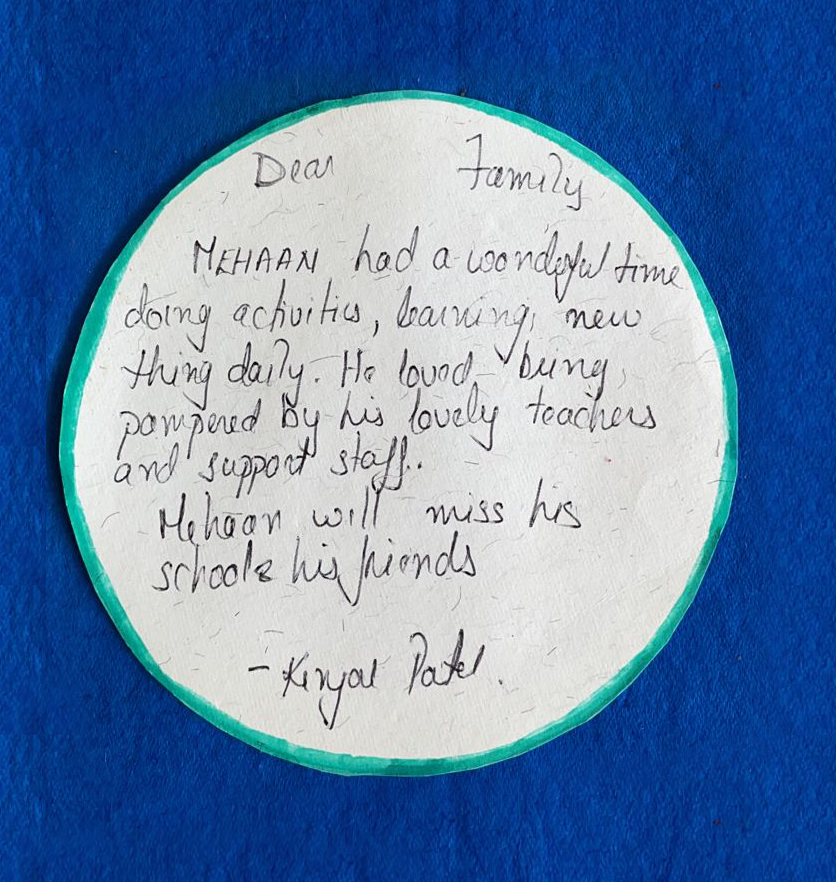 Dear Family
MEHAAN had a wonderful time
doing activities, learning, new
thing daily. He loved being
pampered by his lovely teachers
and support staff.
Mehaan will miss his
school & his friends
- Kinjal Patel.